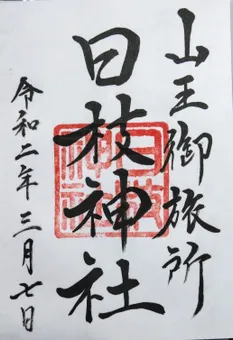 山王御旅所
日枝神社
令和二年三月七日